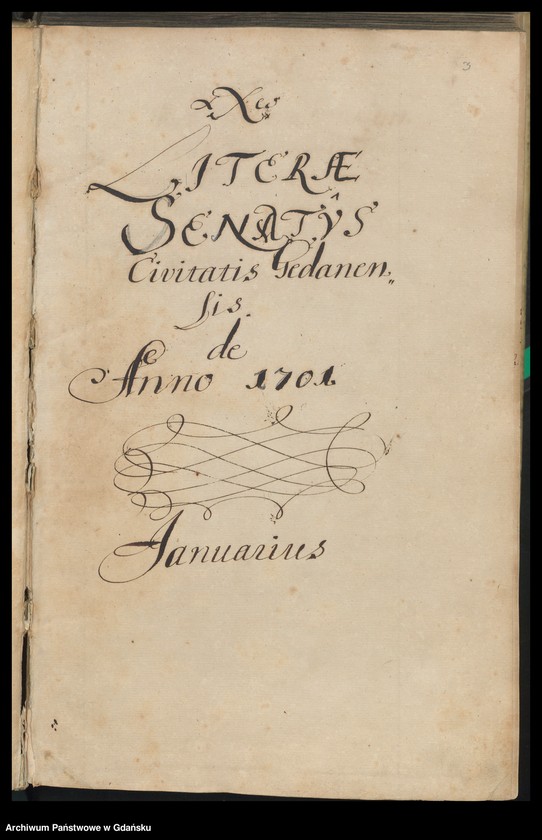 3
LITERÆ
SENATÛS
Civitatis Gedanen„
sis.
de
Anno 1701.
Januarius
Archiwum Państwowe w Gdańsku